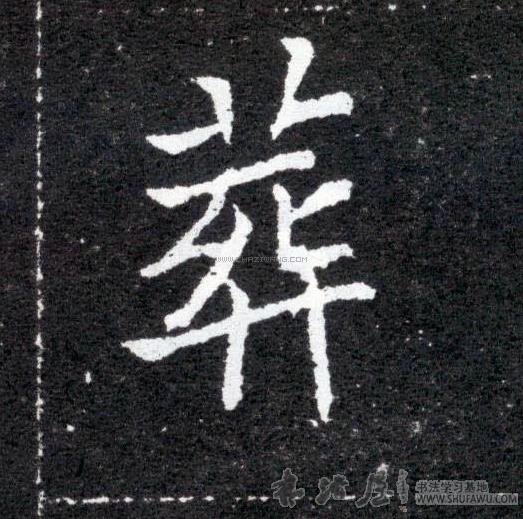 葬
WWW.CHAZIWANG.COM
书法学习基地
WWW.SHUFAWU.COM